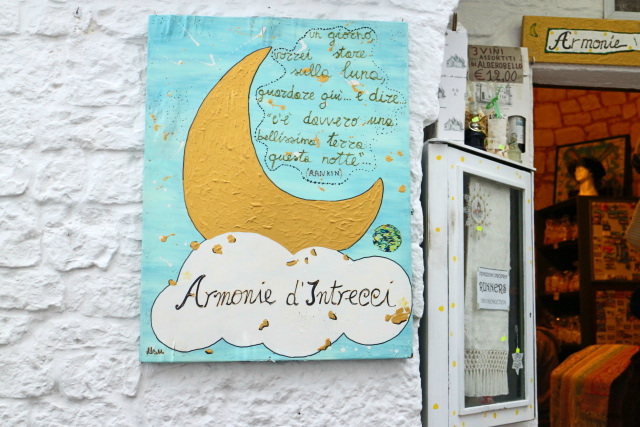 un giorno
vorrei stare
sulla luna
guardare giù... e dire
"c'è davvero una
bellissima terra
questa notte"...
(RANKIN)
Armonie d'Intrecci
3 VINI
ASSORTITI
DI ALBEROBELLO
€12,00
Armonie
RUNNERS